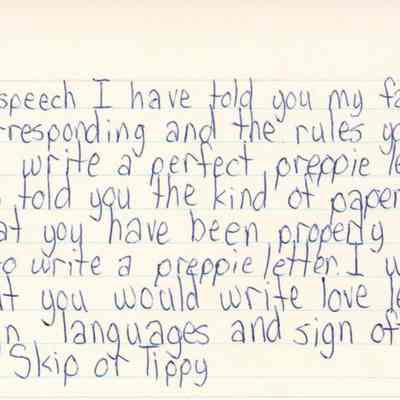 speech I have told you my fa
rresponding and the rules yo
write a perfect preppie le
told you the kind of paper
at you have been properly
o write a preppie letter. I w
t you would write love le
n languages and sign of
Skip or Tippy